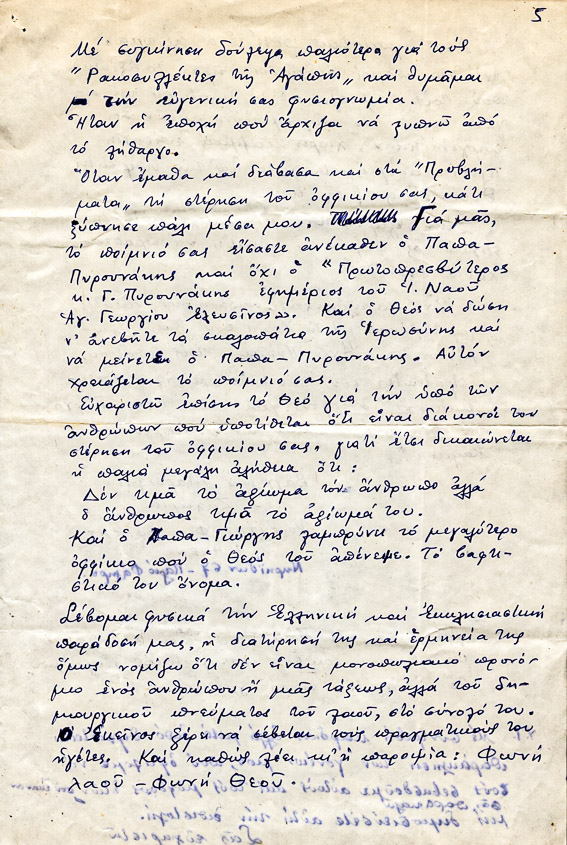 5
Μέ συγκίνηση δούλεψα παλιότερα γιά τούς
"Ρακοσυλλέκτες τῆς Ἀγάπης" καί θυμᾶμαι
μέ τήν εὐγενική σας φυσιογνωμία.
Ἦταν ἡ ἐποχή πού ἄρχιζα νά ξυπνῶ ἀπό
τό λήθαργο.
Ὅταν ἔμαθα καί διάβασα καί στά "Προβλή-
ματα" τή στέρηση τοῦ ὀφφικίου σας, κάτι
ξύπνησε πάλι μέσα μου. Γιά μᾶς,
τό ποίμνιό σας εἴσαστε ἀνέκαθεν ὁ Παπα-
Πυρουνάκης καί ὄχι ὁ "Πρωτοπρεσβύτερος
κ. Γ. Πυρουνάκης ἐφημέριος τοῦ Ἱ. Ναοῦ
Ἁγ. Γεωργίου Ἐλευσῖνος". Καί ὁ Θεός νά δώση
ν' ἀνεβῆτε τά σκαλοπάτια τῆς Ἱερωσύνης καί
νά μείνετε ὁ Παπα-Πυρουνάκης. Αὐτόν
χρειάζεται τό ποίμνιό σας.
Εὐχαριστῶ ἐπίσης τό Θεό γιά τήν ὑπό τῶν
ἀνθρώπων πού ὑποτίθεται ὅτι εἶναι διάκονοί του
στέρηση τοῦ ὀφφικίου σας, γιατί ἔτσι δικαιώνεται
ἡ παλιά μεγάλη ἀλήθεια ὅτι:
Δέν τιμᾶ τό ἀξίωμα τόν ἄνθρωπο ἀλλά
ὁ ἄνθρωπος τιμᾶ τό ἀξίωμά του.
Καί ὁ Παπα-Γιώργης λαμπρύνει τό μεγαλύτερο
ὀφφίκιο πού ὁ Θεός τοῦ ἀπένειμε. Τό βαφτι-
στικό του ὄνομα.
Σέβομαι φυσικά τήν Ἑλληνική καί ἐκκλησιαστική
παράδοσή μας, ἡ διατήρησή της καί ἑρμηνεία της
ὅμως νομίζω ὅτι δέν εἶναι μονοπωλιακό προνό-
μιο ἑνός ἀνθρώπου ἤ μιᾶς τάξεως, ἀλλά τοῦ δη-
μιουργικοῦ πνεύματος τοῦ λαοῦ, στό σύνολό του.
Ἐκεῖνος ξέρει νά σέβεται τούς πραγματικούς του
ἡγέτες. Καί καθώς λέει κι ἡ παροιμία: Φωνή
λαοῦ - Φωνή Θεοῦ.